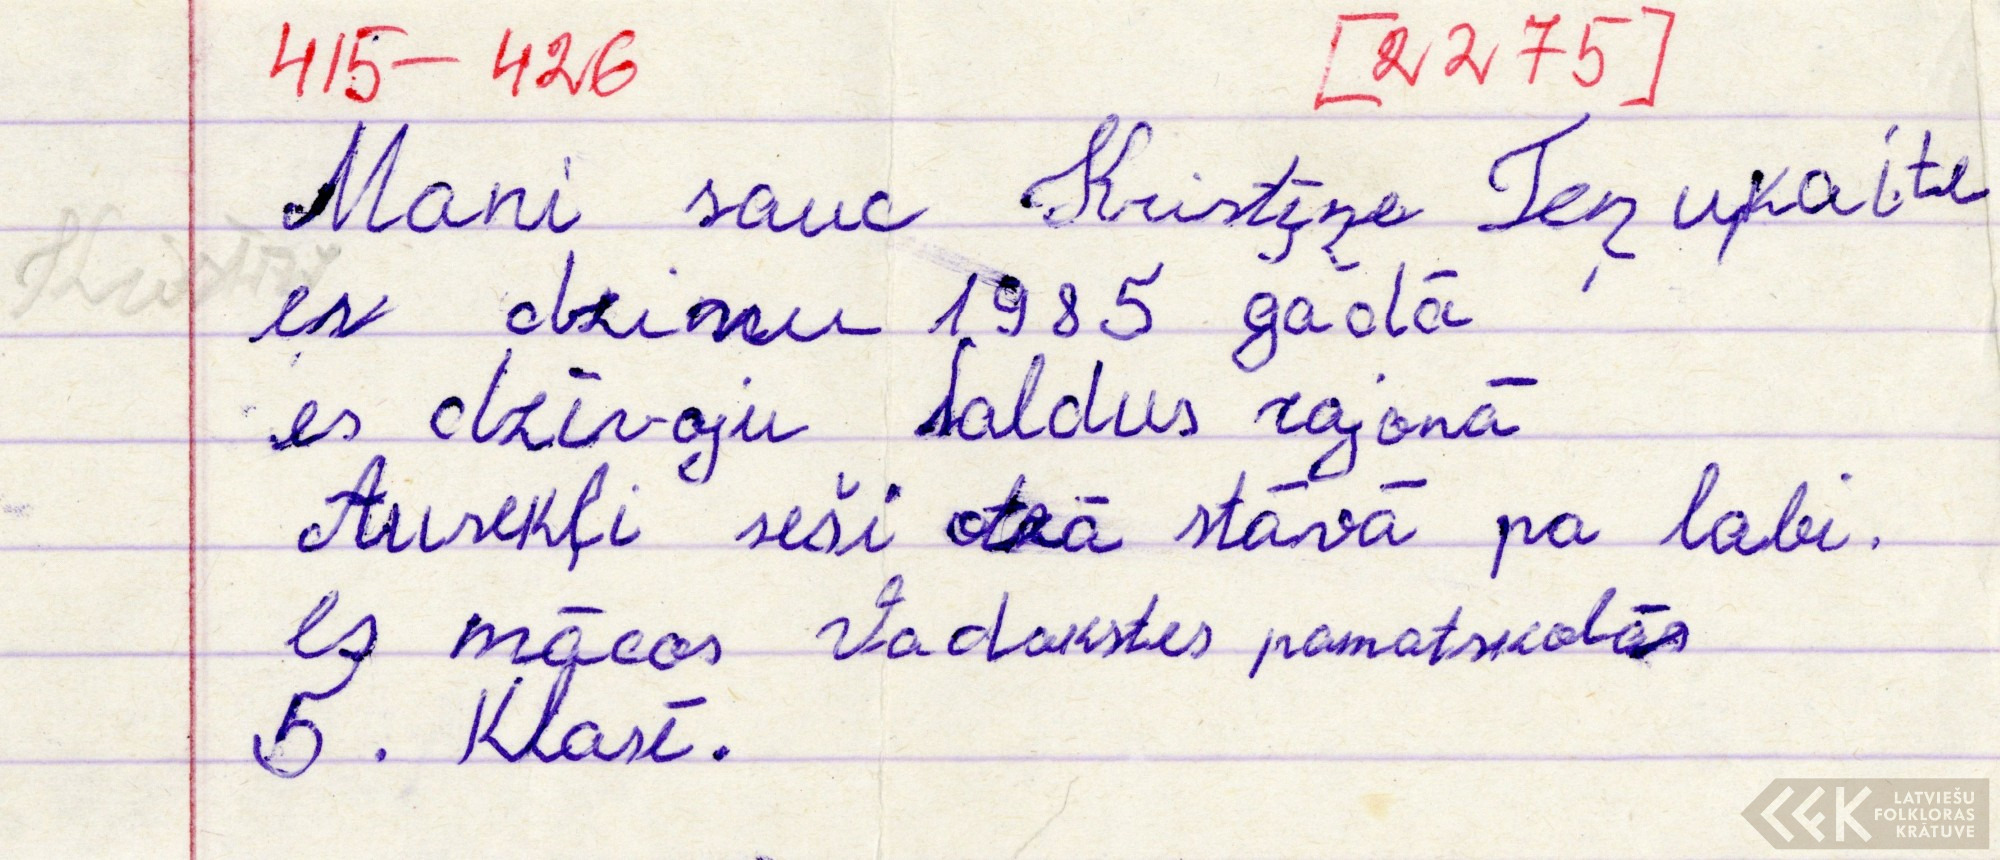 415 – 426 [2275]
Mani sauc Kristīņe Teņukaite
Kristīne
es dzimu 1985 gādā
es dzīvoju Saldus rajonā
Ausekļi seši otrā stāvā pa labi.
Es mācos Vadakstes pamatskolās
5. Klasē.
LATVIEŠU
FOLKLORAS
KRĀTUVE